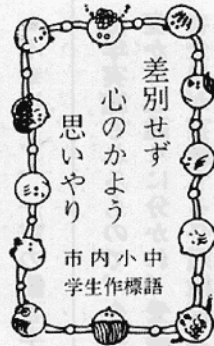 差別せず
心のかよう
思いやり
市内小中
学生作標語